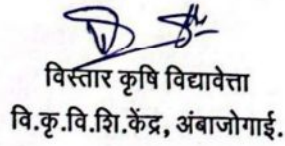 विस्तार कृषि विद्यावेत्ता
वि.कृ.वि.शि.केंद्र, अंबाजोगाई.